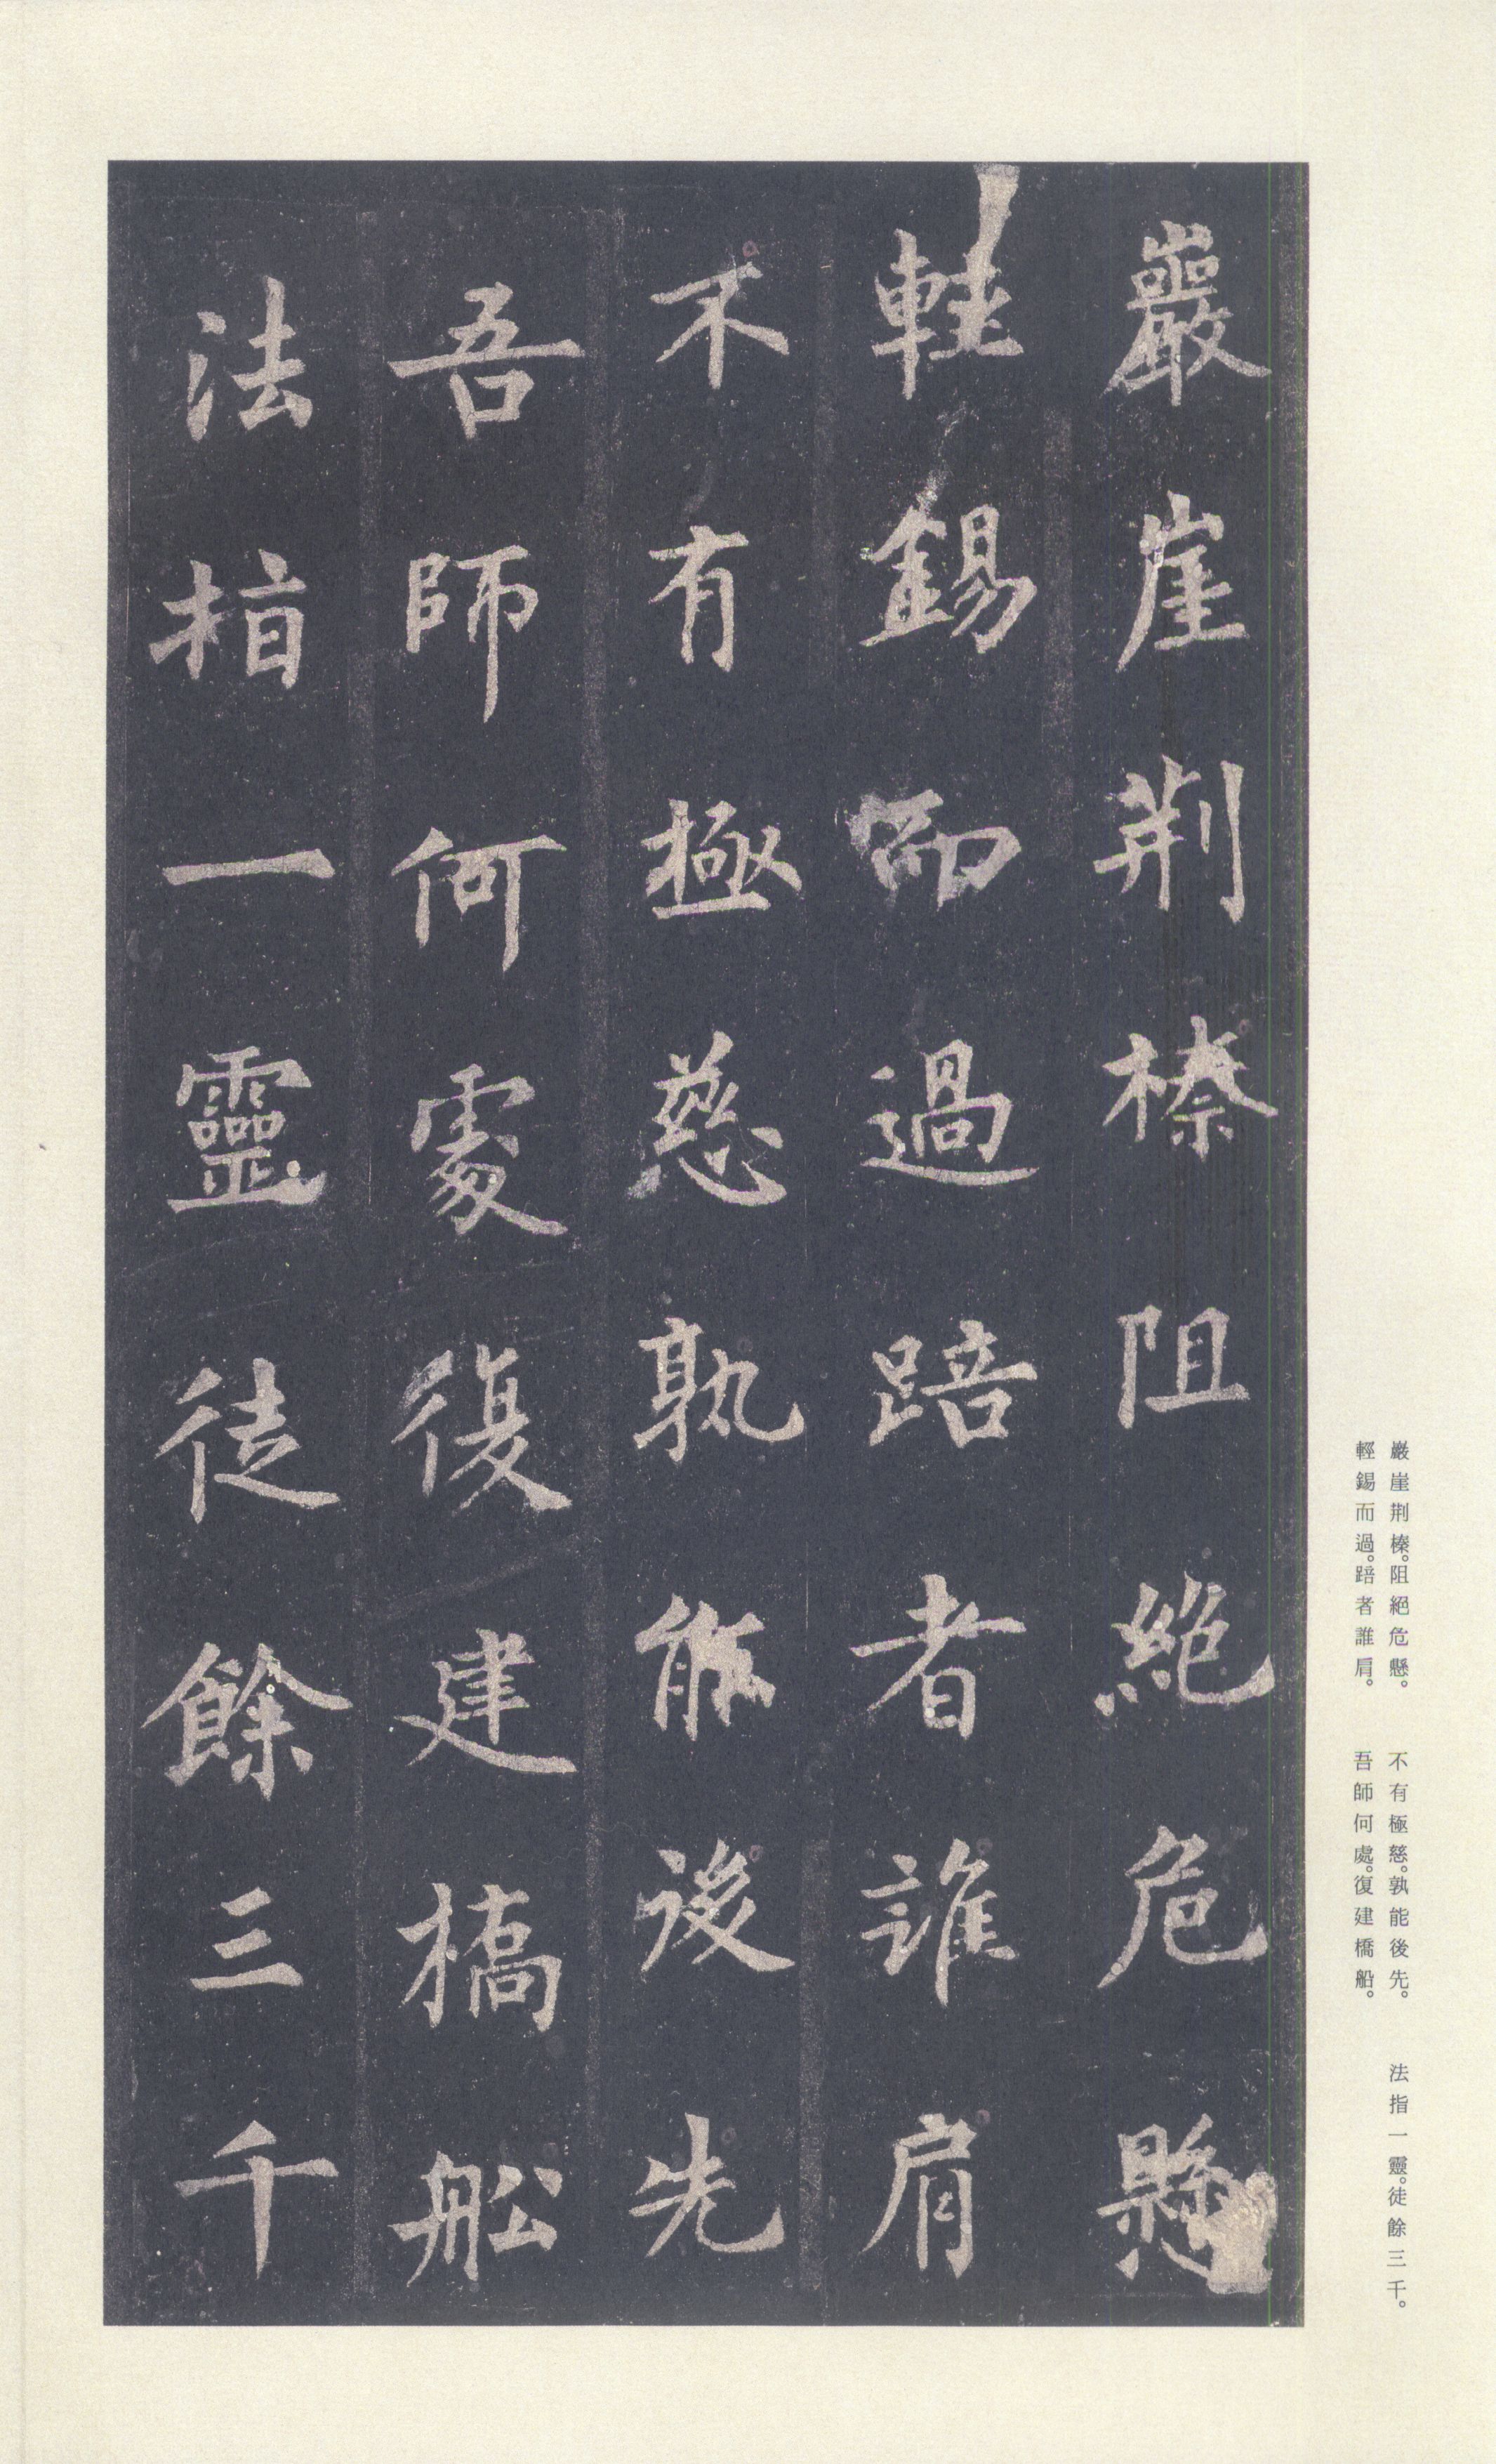 巖崖荆榛阻絕危懸
輕錫而過踣者誰肩
不有極慈孰能後先
吾師何處復建橋船
法指一靈徒餘三千
巖崖荆榛。阻絕危懸。 不有極慈。孰能後先。 法指一靈。徒餘三千。
輕錫而過。踣者誰肩。 吾師何處。復建橋船。